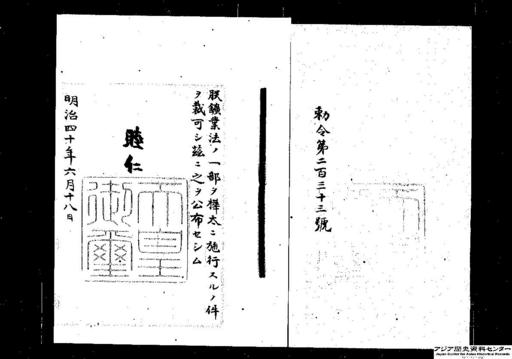 勅令第二百三十三號
朕鑛業法ノ一部ヲ樺太ニ施行スルノ件
ヲ裁可シ茲ニ之ヲ公布セシム
睦仁
天皇
御璽
明治四十年六月十八日
アジア歴史資料センター
Japan Center for Asian Historical Records